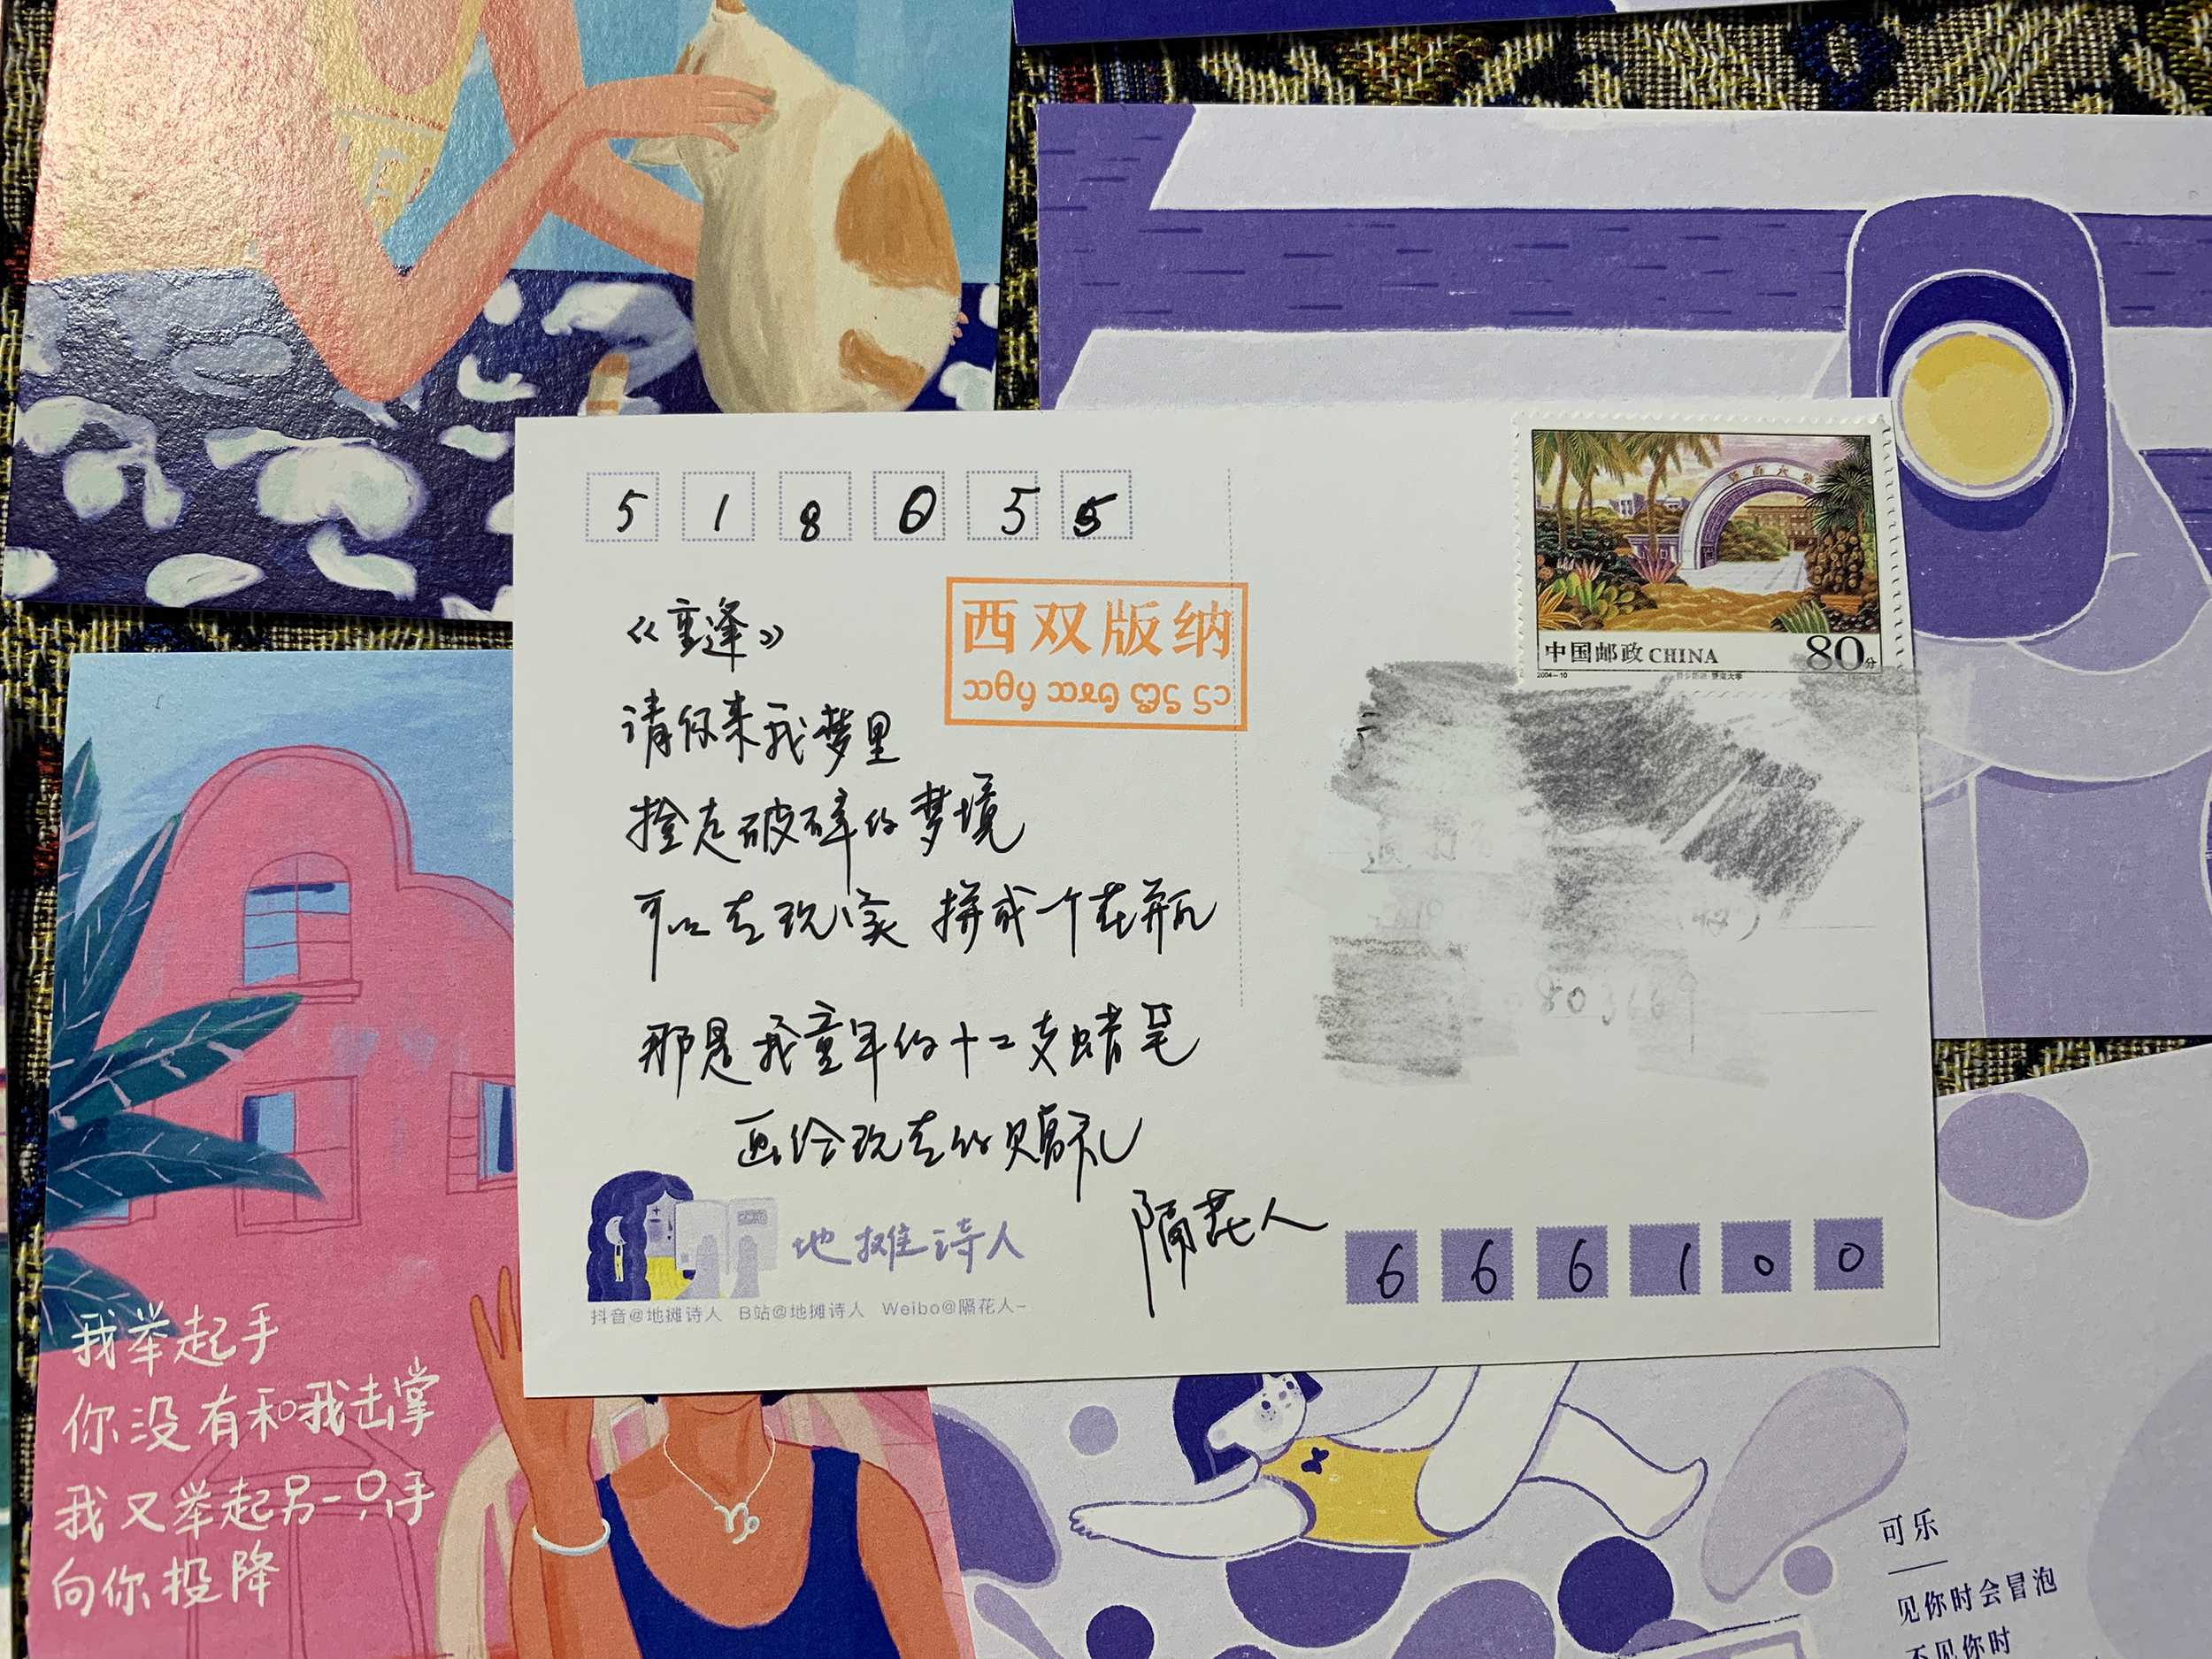 518055
《重逢》
西双版纳
请你来我梦里
捡走破碎的梦境
可以去现实 拼成一个花瓶
那是我童年的十二支蜡笔
画给现在的赠礼
隔花人
地摊诗人
抖音@地摊诗人 B站@地摊诗人 Weibo@隔花人-
暨南大学
中国邮政 CHINA 80分
2004-10
666100
我举起手
你没有和我击掌
我又举起另一只手
向你投降
可乐
见你时会冒泡
不见你时